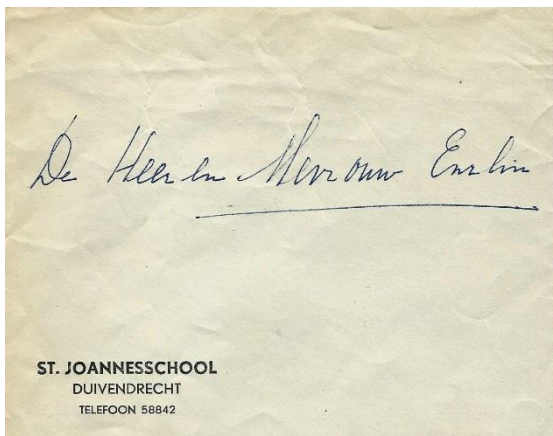 De Heer en Mevrouw Enrlin
ST. JOANNESSCHOOL
DUIVENDRECHT
TELEFOON 58842